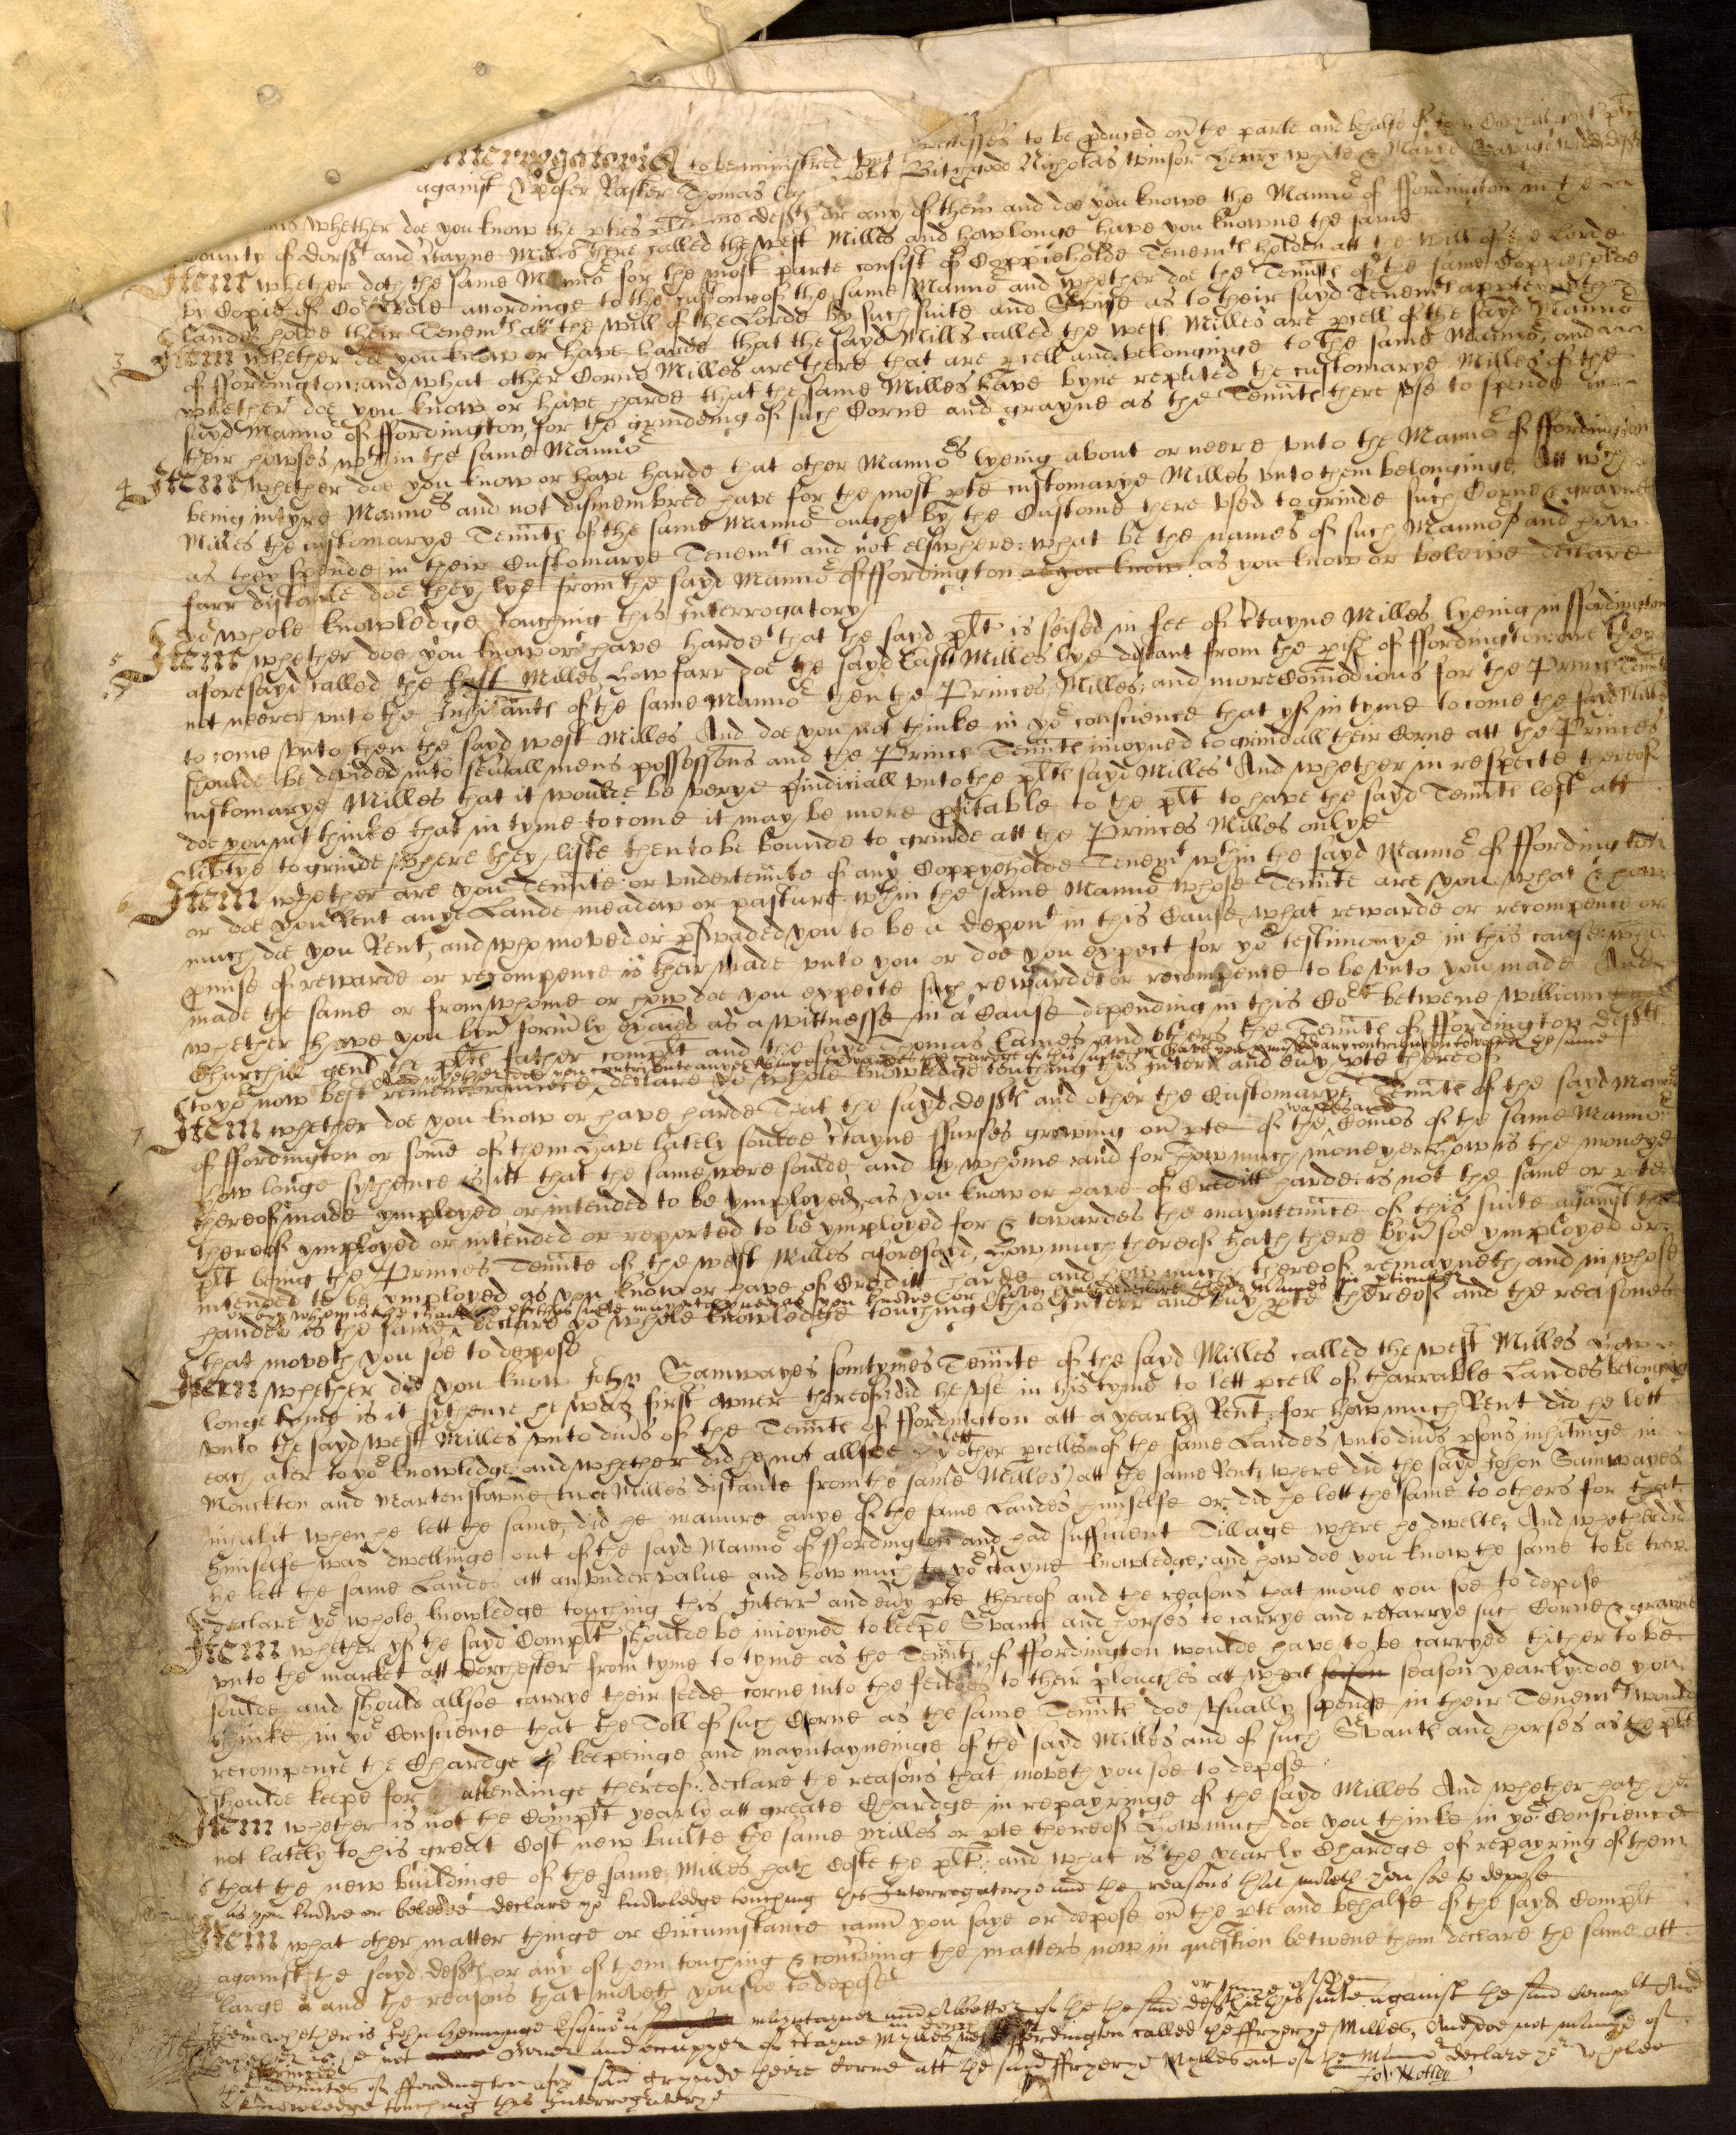 Interrogatories to be ministred unto wittnesses to be pduced on the parte and behalfe of
against Xpofer Rasker Thomas Nicholas Winsor Henry White & Savage widd defts
whether doe you know the pties plt and defts or any of them and doe you knowe the Mannor of ffordington in the
County of Dorset and Certayne Milles there called the West Milles and how longe have you knowne the same
Item whether doth the same Mannor for the most parte consist of Coppieholde Tenemts holden att the will of the Lorde
by Copie of Cort Role accordinge to the custome of the same Mannor and whether doe the Tennts of the same Coppiehold
Landes holde their Tenemts att the will of the Lorde by such suite and Service as to their sayd Tenemts apptey
3 Item whether doe you know or have harde that the sayd Mills called the West Milles are pcell of the sayd Mannor
of ffordington; and what other Corne Milles are there that are pcell and belonginge to the same Mannor, and
whether doe you know or have harde that the same Milles have byne reputed the customarye Milles of the
sayd Mannor of ffordington, for the grindeing of such Corne and grayne as the Tennts there use to spende in
their howses wthin the same Mannor
4 Item whether doe you know or have harde that other Mannors lyeing about or neere unto the Mannor of ffordington
being intyre Mannors and not dismembred have for the most pte customarye Milles unto them belonginge Att wch
Milles the customarye Tennts of the same Mannor ought by the Custome there used to grinde such Corne & grayne
as they spende in their Customarye Tenemts and not elswhere: what be the names of such Mannors and how
farr distante doe they lye from the sayd Mannor of ffordington as you know as you know or beleive declare
yor whole knowledge touching this Interrogatory
5 Item whether doe you know or have harde that the sayd plt is seised in fee of Ctayne Milles lyeing in ffordington
aforesayd called the East Milles How farr doe the sayd East Milles lye distant from the pish of ffordington: are they
not neerer unto the Inhitants of the same Mannor then the Princes Milles; and more Comodious for the Princes Tennts
to come unto then the sayd West Milles And doe you not thinke in yor conscience that yf in tyme to come the sayd Milles
shoulde be devided into sevrall mens possessions and the Princes Tennts inioyned to grind all their Corne att the Princes
customarye Milles that it woulde be verye piudiciall unto the plts sayd Milles And whether in respecte thereof
doe you not thinke that in tyme to come it may be more pfitable to the plt to have the sayd Tennts left att
libtye to grinde where they liste then to be bounde to grinde att the Princes Milles onlye
6 Item whether are you Tennte or undertennte of any Coppyeholde Tenemt wthin the sayd Mannor of ffordington
or doe you Rent anye Lande meadow or pasture wthin the same Mannor whose Tennte are you what & how
much doe you Rent, and who moved or pswaded you to be a depont in this Cause, what rewarde or recompence or
pmise of rewarde or recompence is their made unto you or doe you expect for yor testimonye in this cause: who
made the same or from whome or how doe you expecte such rewarde or recompence to be unto you made And
whether have you byn formly exaied as a wittnesse in a Cause depending in this Cort betwene William
Churchill gent the plts father complt and the sayd Thomas Eames and others the Tennts of ffordington defts
And whether doe you contribute anye thinge towardes the chardge of this suite or have you pmised any contribution towardes the same
to yor now best remembraunce, declare yor whole knowledge touching this Interr and evy pte thereof
7 Item whether doe you know or have harde That the sayd defts and other the Customary Tennts of the sayd Mannor
wastes and
of ffordington or some of them have lately soulde Ctayne ffurses growing on pte of the Comons of the same Mannor
how longe sythence is itt that the same were soulde and by whome: and for how much moneye: How is the moneye
thereof made ymployed or intended to be ymployed, as you know or have of Creditt harde: is not the same or pte
thereof ymployed or intended or reported to be ymployed for & towardes the mayntennce of this suite against the
plt being the Princes Tennte of the West Milles aforesayd, How much thereof hath there byn soe ymployed or
intended to be ymployed as you know or have of Creditt harde and how much thereof remayneth and in whose
or by whom is the chardge of this suite mayntayned as you knowe or have harde declare their names in pticuler
handes is the same, declare yor whole knowledge touching this Interr and evy pte thereof and the reasones
that moveth you soe to depose
Item whether did you know John Samwayes somtymes Tennte of the sayd Milles called the West Milles How
longe tyme is it sythence he was first owner thereof: did he use in his tyme to lett pcell of tharrable Landes belonging
unto the sayd West Milles unto divs of the Tennts of ffordington att a yearly Rent: for how much Rent did he lett
lett
each aker to yor knowledge: and whether did he not allsoe other pcelles of the same Landes unto divs psons inhitinge in
Monckton and Martenstowne (two Milles distante from the same Milles) att the same Rent: where did the sayd John Samwayes
inhabit when he lett the same, did he manure anye of the same Landes himselfe or did he lett the same to others for that
himselfe was dwellinge out of the sayd Mannor of ffordington and had sufficient Tillage where he dwelte; And whether did
he lett the same Landes att an undervalue and how much to yor ctayne knowledge; and how doe you know the same to be trew
declare yor whole knowledge touching this Interr and evy pte thereof and the reasons that move you soe to depose
Item whether yf the sayd Complt shoulde be inioyned to keepe Svants and horses to carrye and recarrye such Corne & grayne
unto the market att Dorchester from tyme to tyme as the Tennts of ffordington woulde have to be carryed thither to be
soulde and should allsoe carrye their seede corne into the feildes to their ploughes att wheat season yearly: doe you
thinke in yor Conscience that the Toll of such Corne as the same Tennts doe usually spende in their Tenemts would
recompence the Chardge of keepeinge and mayntayneinge of the sayd Milles and of such Svants and horses as the plt
shoulde keepe for attendinge thereof: declare the reasons that moveth you soe to depose
Item whether is not the Complt yearly att greate Chardge in repayringe of the sayd Milles And whether hath he
not lately to his great Cost new builte the same Milles or pte thereof How much doe you thinke in yor Conscience
that the new buildinge of the same Milles hath Coste the plt: and what is the yearly Chardge of repayring of them
as you knowe or beleeve declare yor knowledge touching this Interrogatorye and the reasons that moveth you soe to depose
Item what other matter thinge or Circumstance cann you saye or depose on the pte and behalfe of the sayd Complt
against the sayd defts or any of them touching & concning the matters now in question betwene them declare the same att
large and the reasons that moveth you soe to depose
or some of them
Item whether is John Hemminge Esquire a mayntayner and Abettor of the said defts in this suite against the said Complt And
whether is he not Owner and occupyer of ctayne Mylles neere ffordington called the ffryerye Milles, And doe not manye of
the Tennts of ffordington aforesaid grynde theire Corne att the said ffryerye Mylles out of the Mannor declare yor wholee
knowledge touching this Interrogatorye